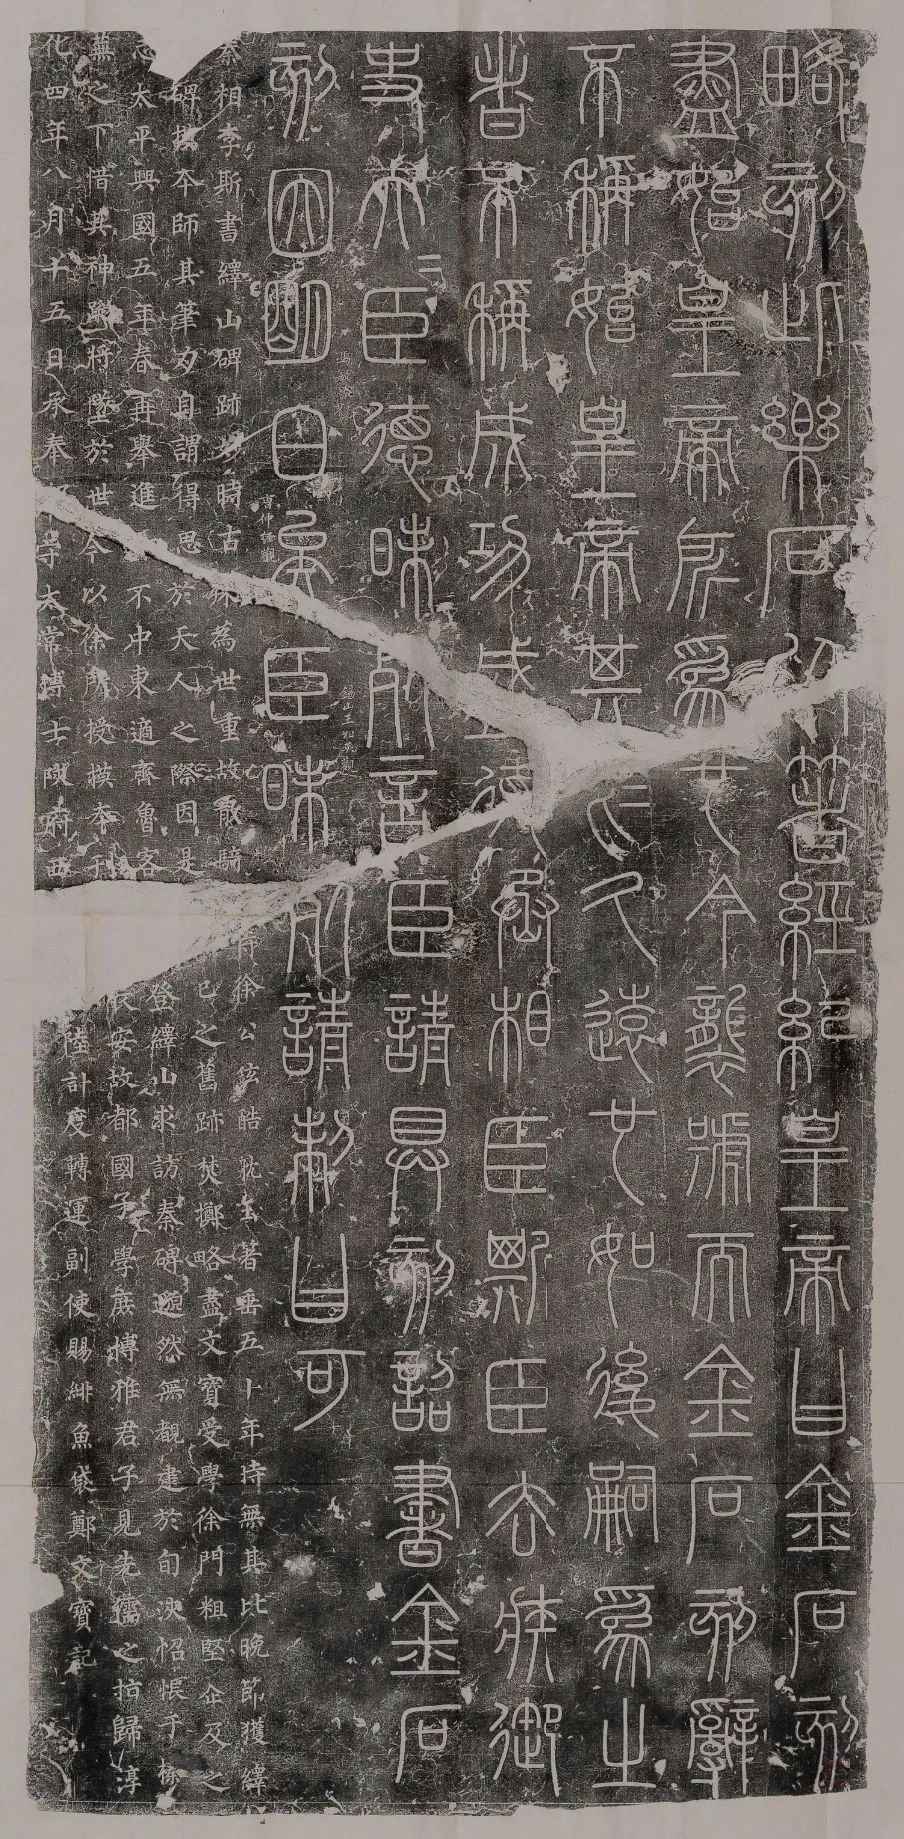 略刻此樂石以著經紀皇帝曰金石刻
盡始皇帝所為也今襲號而金石刻辭
不稱始皇帝其於久遠也如後嗣為之
者不稱成功盛德丞相臣斯臣去疾御
史夫=臣德昧死言臣請具刻詔書金石
刻因明白矣臣昧死請制曰可
秦相李斯書繹山碑跡妙時古殊為世重故散騎侍徐公鉉酷耽玉箸垂五十年時無其比晚節獲繹
碑摸本師其筆力自謂得思於天人之際因是己之舊跡焚擲略盡文寶受學徐門粗堅企及之
志太平興國五年春再舉進不中東適齊魯客登繹山求訪秦碑邈然無覩逮於旬浹怊悵于榛
蕪之下惜其神蹤將墜於世今以徐所授摸本刊長安故都國子學庶博雅君子見先儒之指歸淳
化四年八月十五日承奉守太常博士陝府西陸計度轉運副使賜緋魚袋鄭文寶記